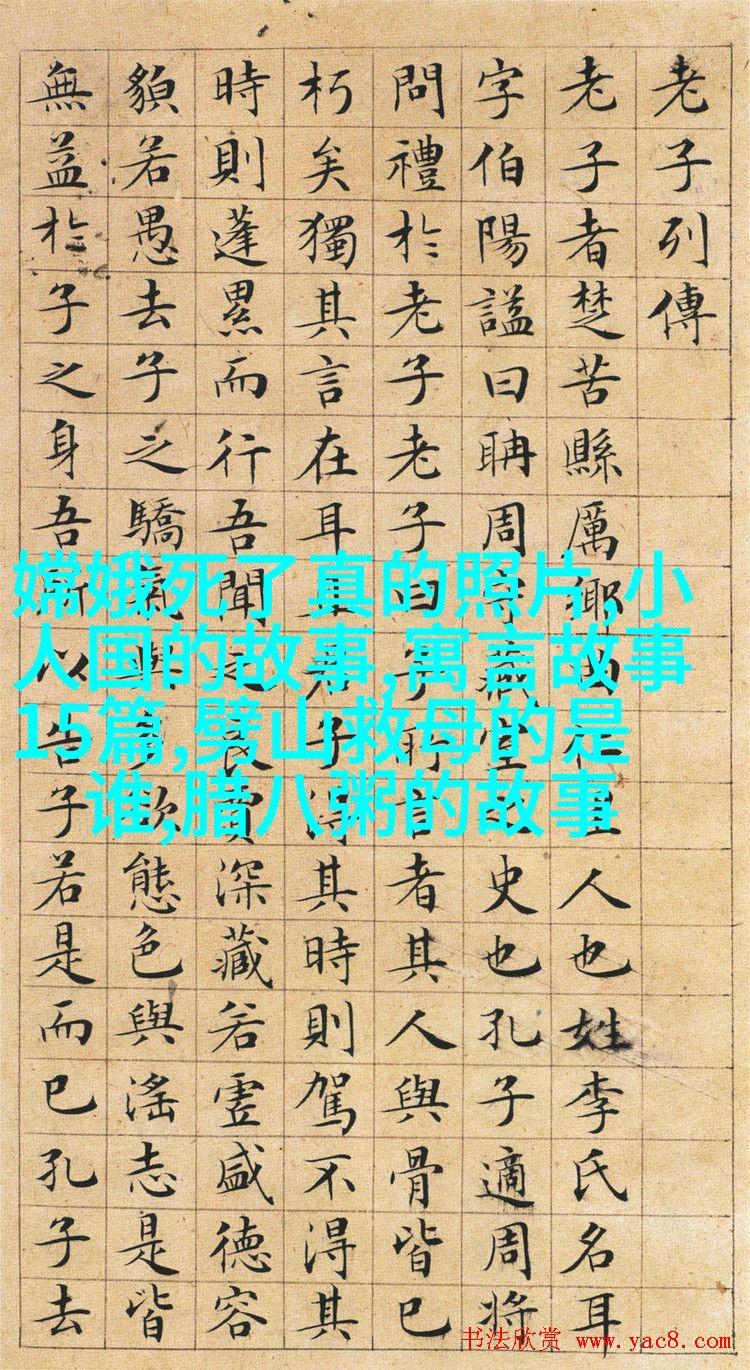 老子列傳
老子者楚苦縣厲鄉曲仁里人也姓李氏名耳
字伯陽諡曰聃周守藏室之史也孔子適周將
問禮於老子老子曰子所言者其人與骨皆已
朽矣獨其言在耳且君子得其時則駕不得其
時則蓬累而行吾聞之良賈深藏若虛盛德容
貌若愚去子之驕氣與多欲態色與淫志是皆
無益於子之身吾所以告子若是而已孔子去
嫦娥死了真的照片,小
人国的故事,寓言故事
15篇,劈山救母的是
谁,腊八粥的故事
书法欣赏 www.yac8.com